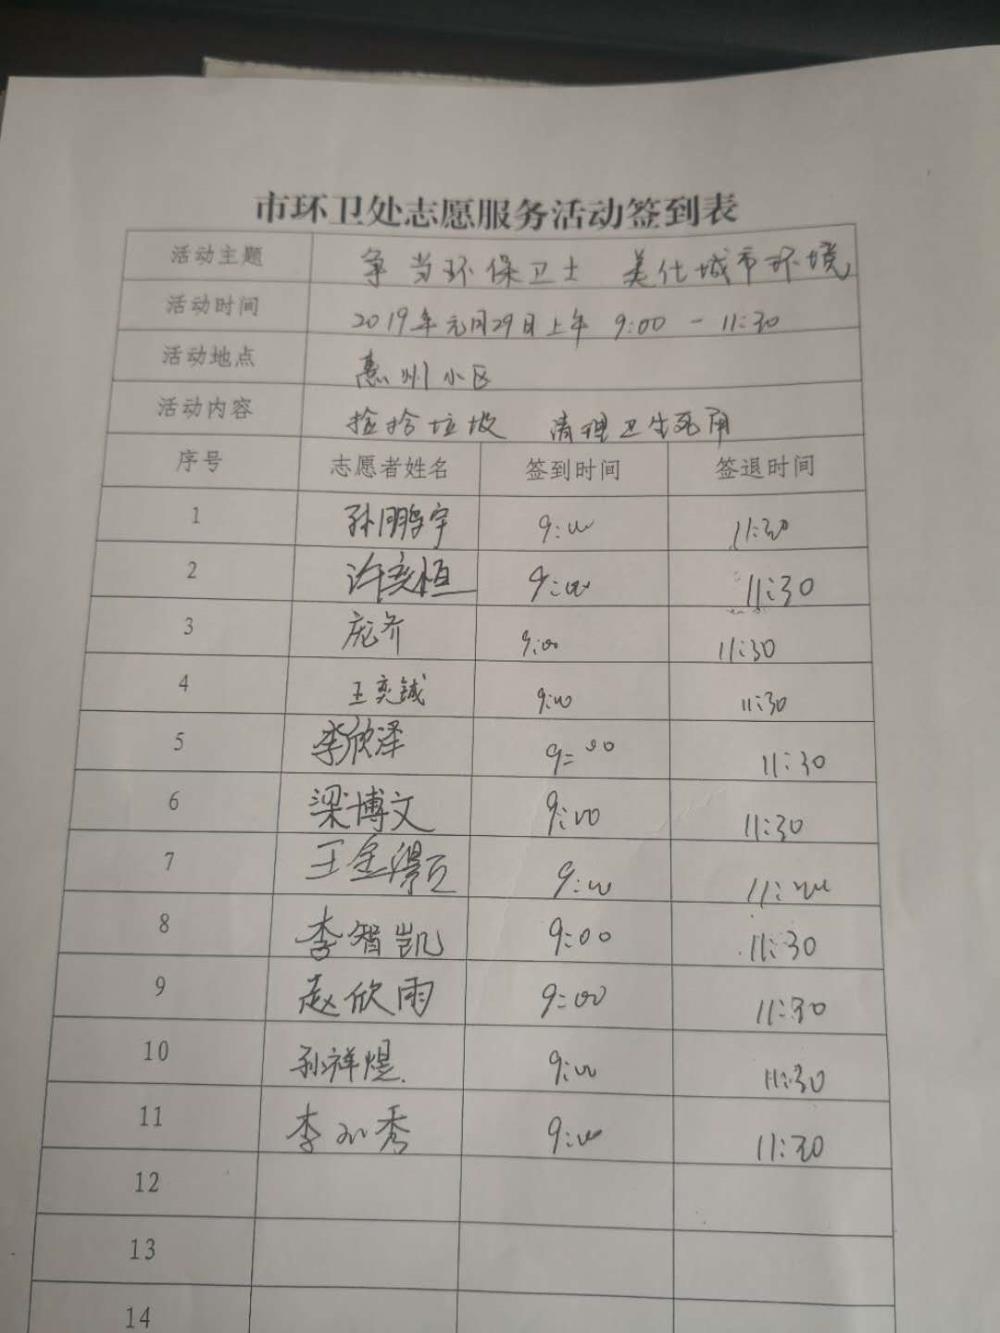 市环卫处志愿服务活动签到表
活动主题 争当环保卫士 美化城市环境
活动时间 2019年元月29日上午 9:00 - 11:30
活动地点 惠州小区
活动内容 捡拾垃圾 清理卫生死角
序号 志愿者姓名 签到时间 签退时间
1 孙鹏宇 9:00 11:30
2 许奕恒 9:00 11:30
3 庞齐 9:00 11:30
4 王奕铖 9:00 11:30
5 李欣泽 9:00 11:30
6 梁博文 9:00 11:30
7 王金灏 9:00 11:30
8 李智凯 9:00 11:30
9 赵欣雨 9:00 11:30
10 孙祥煜 9:00 11:30
11 李 秀 9:00 11:30
12
13
14